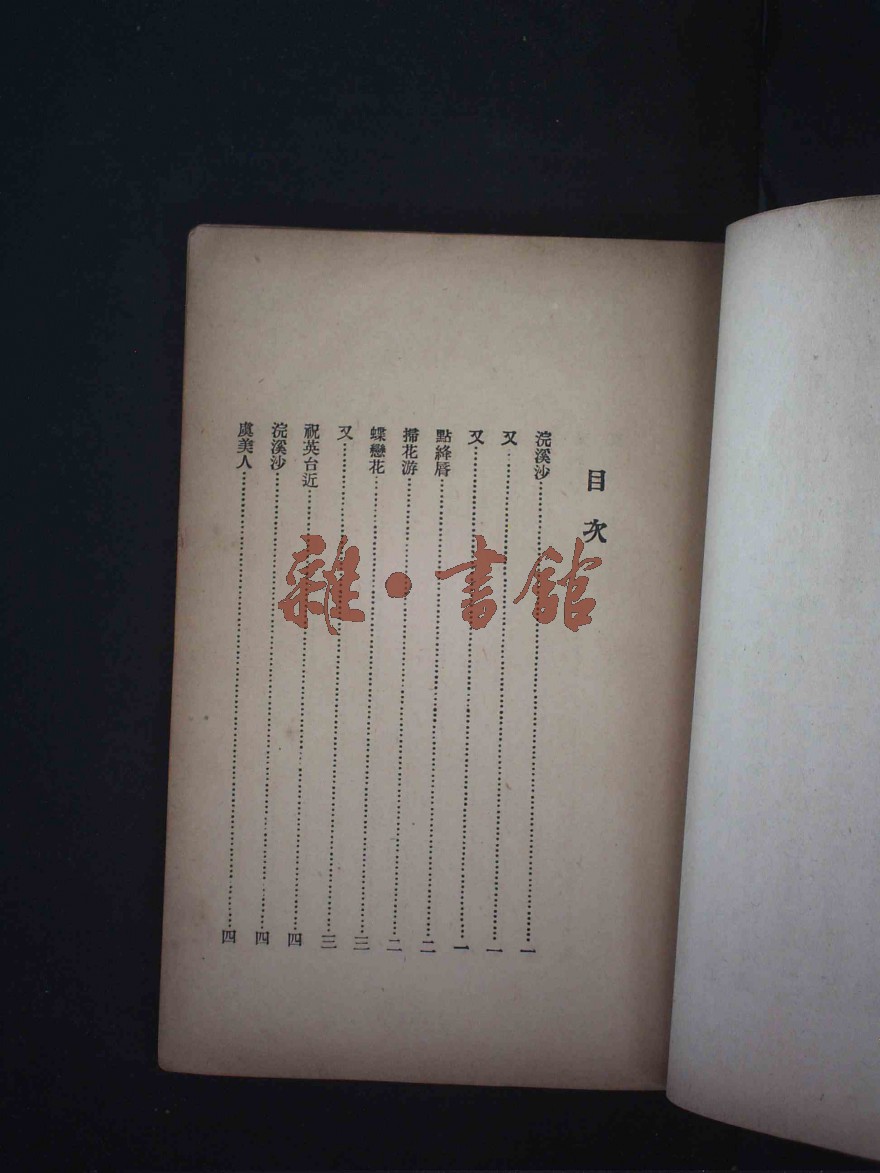 目次
浣溪沙……一
又……一
又……一
點絳唇……二
掃花游……二
蝶戀花……三
又……三
祝英台近……四
浣溪沙……四
虞美人……四
雜·書館